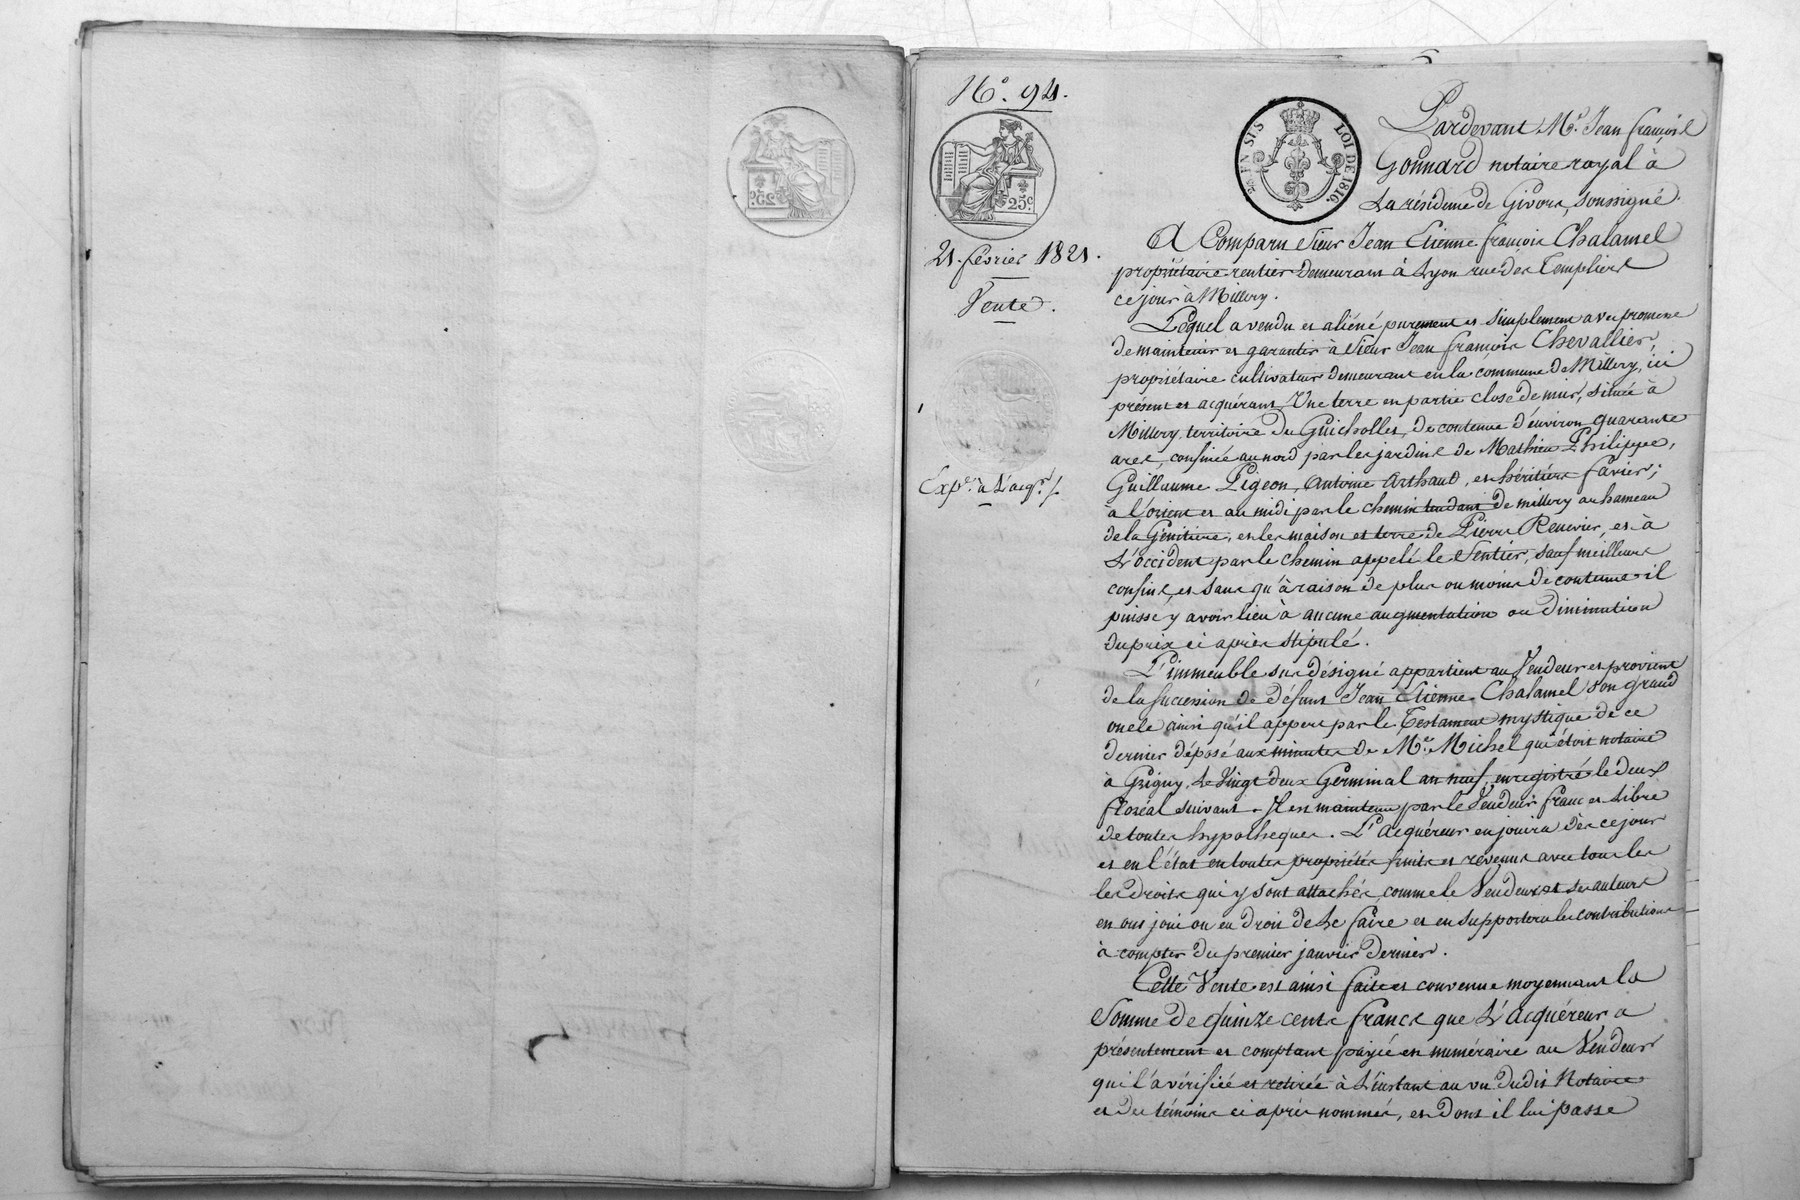 N.° 94.
25c
EN SUS
LOI DE 1816.
21. février 1821.
Vente.
Expon. à L'acqr. /.
Pardevant Me. Jean françois
Gonnard notaire royal à
La résidence de Givors, soussigné.
A Comparu Sieur Jean Etienne françois Chalamel
propriétaire rentier demeurant à Lyon rue des Templiers
ce jour à Millery.
Lequel a vendu et aliéné purement et simplement avec promesse
de maintenir et garantir à Sieur Jean françois Chevallier,
propriétaire cultivateur demeurant en la commune de Millery, ici
présent et acquérant, Une terre en partie close de mur, située à
Millery, territoire du Guicholles, de contenue d'environ quarante
ares, confinée au nord par les jardins de Mathieu Philippe,
Guillaume Pigeon, Antoine Arthaud, et héritiers favier;
à l'orient et au midi par le chemin tendant de millery au hameau
de la Génitière, et les maison et terre de Pierre Renevier, et à
L'occident par le chemin appelé le Sentier, sauf meilleurs
confins, et sans qu'à raison de plus ou moins de contenue il
puisse y avoir lieu à aucune augmentation ou diminution
du prix ci après stipulé.
L'immeuble sus désigné appartient au Vendeur et provient
de la succession de défunt Jean Etienne Chalamel son grand
oncle ainsi qu'il appert par le Testament mystique de ce
dernier déposé aux minutes de Me. Michel qui étoit notaire
à Grigny, Le Vingt deux Germinal an neuf, enregistré le deux
floréal suivant. Il est maintenu par le Vendeur franc et Libre
de toutes hypotheques. L'acquéreur en jouira dès ce jour
et en l'état en toutes propriétés fruits et revenus avec tous les
les droits qui y sont attachés, comme le Vendeur et ses auteurs
en ont joui ou eu droit de Le faire et en supportera les contributions
à compter du premier janvier dernier.
Cette Vente est ainsi faite et convenue moyennant la
Somme de quinze cents francs que L'acquéreur a
présentement et comptant payée en numéraire au Vendeur
qui l'a vérifiée et retirée à L'instant au vu dudit Notaire
et des témoins ci après nommés, et dont il lui passe